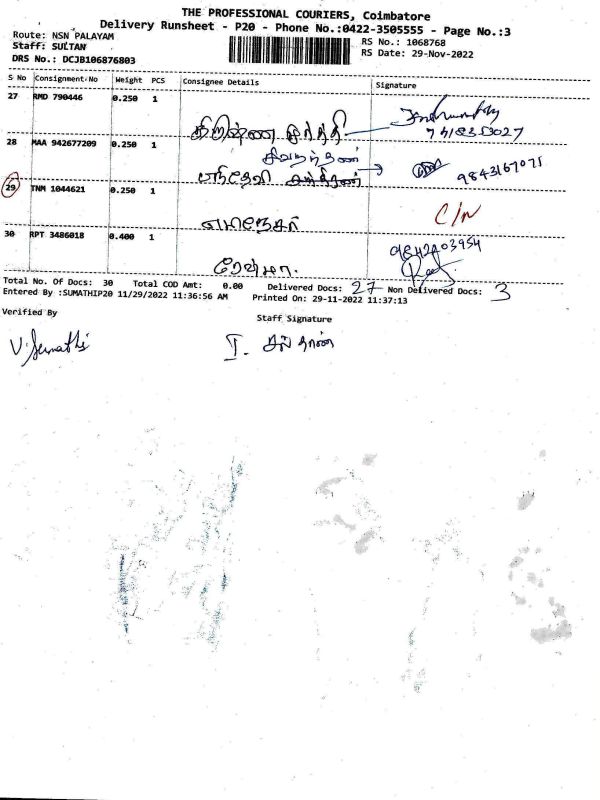 THE PROFESSIONAL COURIERS, Coimbatore
Delivery Runsheet - P20 - Phone No.:0422-3505555 - Page No.:3
Route: NSN PALAYAM
RS No.: 1068768
Staff: SULTAN
RS Date: 29-Nov-2022
DRS No.: DCJB106876803
S No Consignment-No Weight PCS Consignee Details Signature
27 RMD 790446 0.250 1
28 MAA 942677209 0.250 1
9843167071
29 TNM 1044621 0.250 1
C/N
30 RPT 3486018 0.400 1
ரேஷ்மா.
Total No. Of Docs: 30 Total COD Amt: 0.00 Delivered Docs: 27 Non Delivered Docs: 3
Entered By :SUMATHIP20 11/29/2022 11:36:56 AM Printed On: 29-11-2022 11:37:13
Verified By
Staff Signature
V. Sumathi
I. சுல்தான்